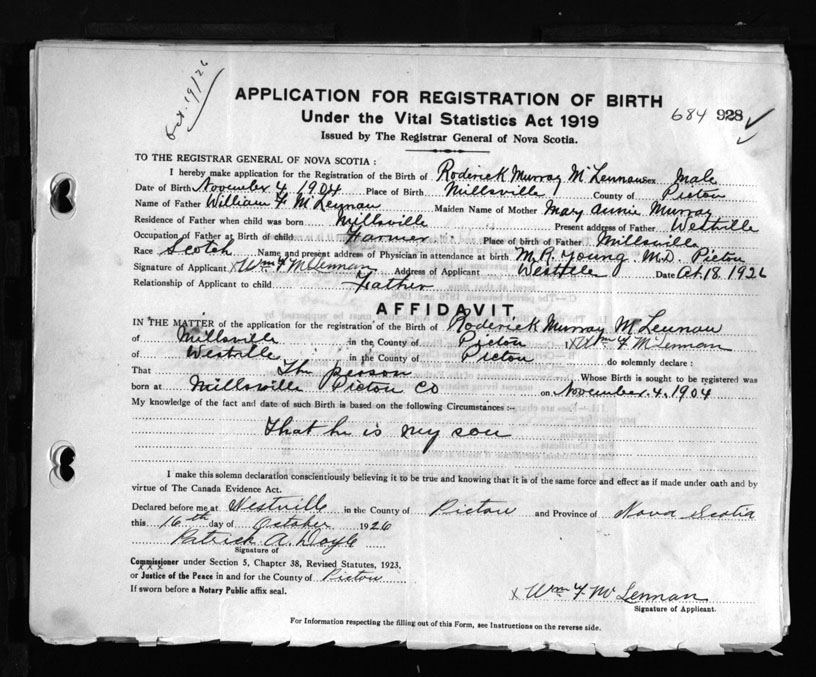 Oct. 19/26
APPLICATION FOR REGISTRATION OF BIRTH
684 928
Under the Vital Statistics Act 1919
Issued by The Registrar General of Nova Scotia.
TO THE REGISTRAR GENERAL OF NOVA SCOTIA :
I hereby make application for the Registration of the Birth of Roderick Murray McLennan Sex Male
Date of Birth November 4, 1904 Place of Birth Millsville County of Pictou
Name of Father William F McLennan Maiden Name of Mother Mary Annie Murray
Residence of Father when child was born Millsville Present address of Father Westville
Occupation of Father at Birth of child Farmer Place of birth of Father Millsville
Race Scotch Name and present address of Physician in attendance at birth M. R. Young M.D. Pictou
Signature of Applicant x Wm F McLennan Address of Applicant Westville Date Oct. 18, 1926
Relationship of Applicant to child Father
AFFIDAVIT
IN THE MATTER of the application for the registration of the Birth of Roderick Murray McLennan
of Millsville in the County of Pictou x Wm F McLennan
of Westville in the County of Pictou do solemnly declare :
That The person Whose Birth is sought to be registered was
born at Millsville Pictou Co on November. 4, 1904
My knowledge of the fact and date of such Birth is based on the following Circumstances :-
That he is my son
I make this solemn declaration conscientiously believing it to be true and knowing that it is of the same force and effect as if made under oath and by
virtue of The Canada Evidence Act.
Declared before me at Westville in the County of Pictou and Province of Nova Scotia
this 16th day of October 1926
Patrick A. Doyle
Signature of
Commissioner under Section 5, Chapter 38, Revised Statutes, 1923.
xxx
or Justice of the Peace in and for the County of Pictou
If sworn before a Notary Public affix seal.
x Wm F McLennan
Signature of Applicant.
For Information respecting the filling out of this Form, see Instructions on the reverse side.